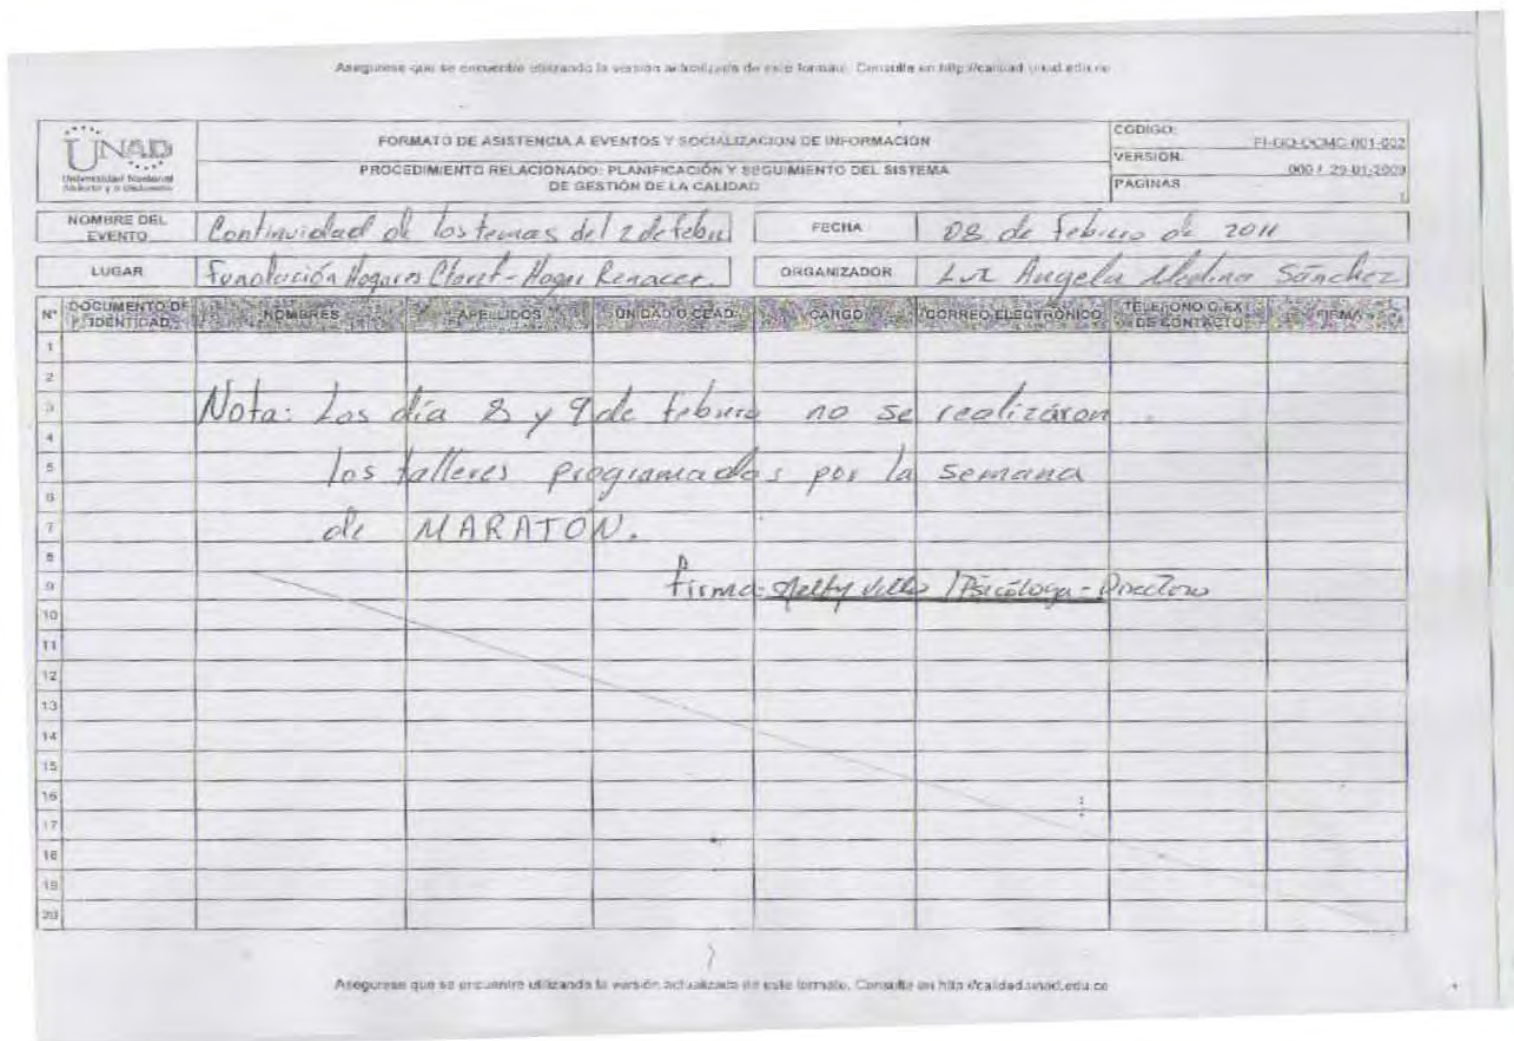 Asegurese que se encuentre utilizando la versión actualizada de este formato. Consulte en http://calidad.unad.edu.co
UNAD
Universidad Nacional
Abierta y a Distancia
FORMATO DE ASISTENCIA A EVENTOS Y SOCIALIZACION DE INFORMACION
PROCEDIMIENTO RELACIONADO: PLANIFICACIÓN Y SEGUIMIENTO DEL SISTEMA
DE GESTIÓN DE LA CALIDAD
CODIGO: FI-GQ-OCMC-001-002
VERSION: 000 / 29-01-2009
PAGINAS 1
NOMBRE DEL EVENTO Continuidad de los temas del 2 de febu FECHA 08 de febrero de 2011
LUGAR Fundación Hogares Claret - Hogar Renacer. ORGANIZADOR Luz Angela Medina Sánchez
N° DOCUMENTO DE IDENTIDAD NOMBRES APELLIDOS UNIDAD O CEAD CARGO CORREO ELECTRÓNICO TELEFONO O EXT DE CONTACTO FIRMA
1
2
3 Nota: Los día 8 y 9 de febrero no se realizáron
4
5 los talleres programados por la semana
6
7 de MARATÓN.
8
9 firma: Nelfy / Psicóloga - Directora
10
11
12
13
14
15
16
17
18
19
20
Asegurese que se encuentre utilizando la versión actualizada de este formato. Consulte en http://calidad.unad.edu.co